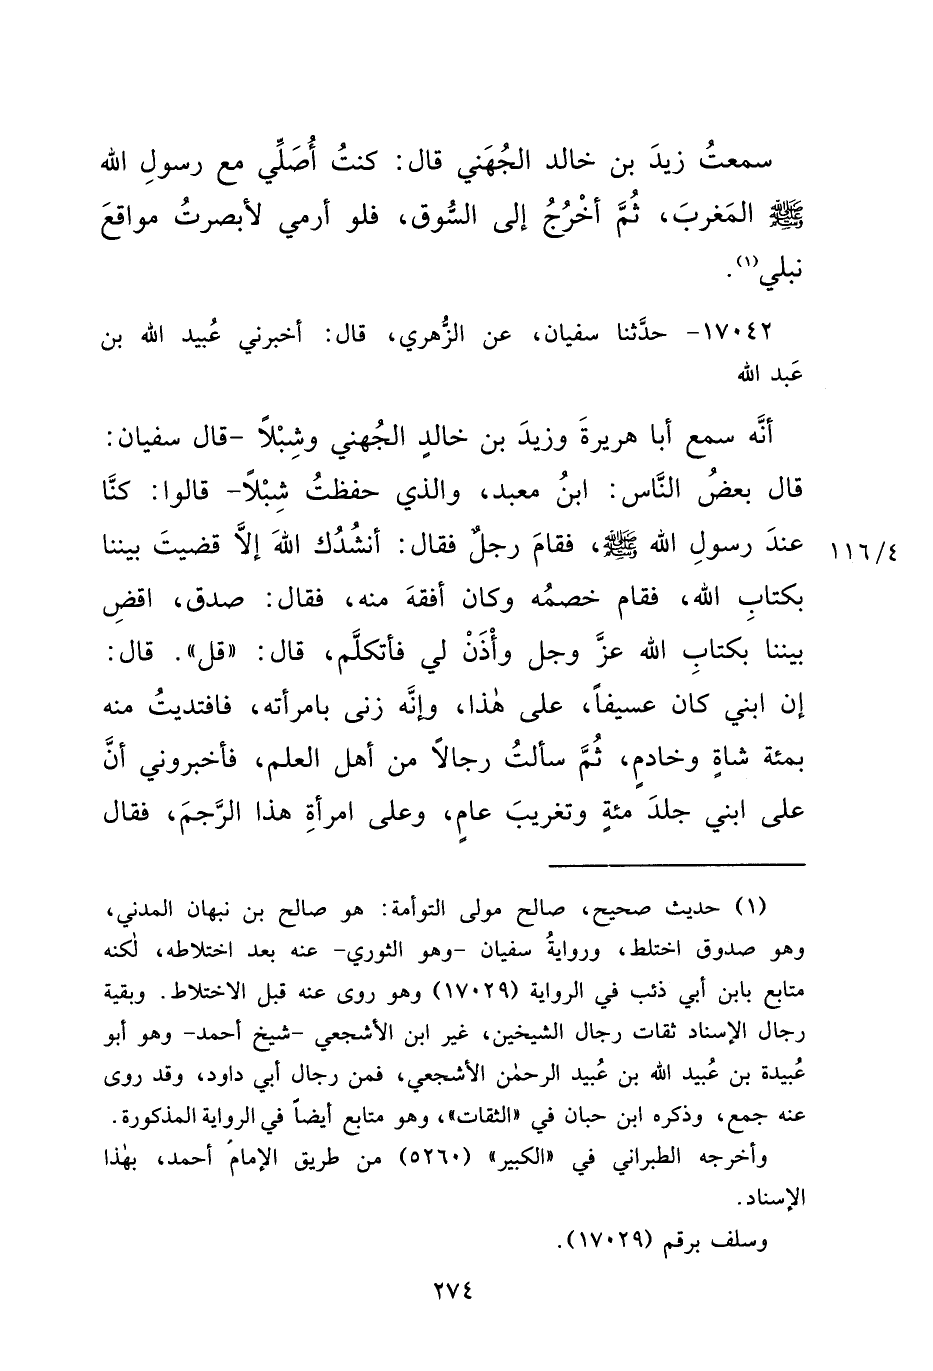 سمعتُ زيدَ بن خالد الجُهَني قال: كنتُ أُصَلِّي مع رسولِ الله
ﷺ المَغربَ، ثُمَّ أخْرُجُ إلى السُّوق، فلو أرمي لأبصرتُ مواقعَ
نبلي(١).
١٧٠٤٢- حدَّثنا سفيان، عن الزُّهري، قال: أخبرني عُبيد الله بن
عَبد الله
أنَّه سمع أبا هريرةَ وزيدَ بن خالدٍ الجُهني وشِبْلاً -قال سفيان:
قال بعضُ النَّاس: ابنُ معبد، والذي حفظتُ شِبْلاً- قالوا: كنَّا
عندَ رسولِ الله ﷺ، فقامَ رجلٌ فقال: أنشُدُك اللهَ إلاَّ قضيتَ بيننا
١١٦/٤
بكتابِ الله، فقام خصمُه وكان أفقهَ منه، فقال: صدق، اقضِ
بيننا بكتابِ الله عزَّ وجل وأْذَنْ لي فأتكلَّم، قال: «قل». قال:
إن ابني كان عسيفاً، على هٰذا، وإنَّه زنى بامرأته، فافتديتُ منه
بمئة شاةٍ وخادمٍ، ثُمَّ سألتُ رجالاً من أهل العلم، فأخبروني أنَّ
على ابني جلدَ مئةٍ وتغريبَ عامٍ، وعلى امرأةِ هذا الرَّجمَ، فقال
(١) حديث صحيح، صالح مولى التوأمة: هو صالح بن نبهان المدني،
وهو صدوق اختلط، وروايةُ سفيان -وهو الثوري- عنه بعد اختلاطه، لٰكنه
متابع بابن أبي ذئب في الرواية (١٧٠٢٩) وهو روى عنه قبل الاختلاط. وبقية
رجال الإسناد ثقات رجال الشيخين، غير ابن الأشجعي -شيخ أحمد- وهو أبو
عُبيدة بن عُبيد الله بن عُبيد الرحمٰن الأشجعي، فمن رجال أبي داود، وقد روى
عنه جمع، وذكره ابن حبان في «الثقات»، وهو متابع أيضاً في الرواية المذكورة.
وأخرجه الطبراني في «الكبير» (٥٢٦٠) من طريق الإمام أحمد، بهٰذا
الإسناد.
وسلف برقم (١٧٠٢٩).
٢٧٤